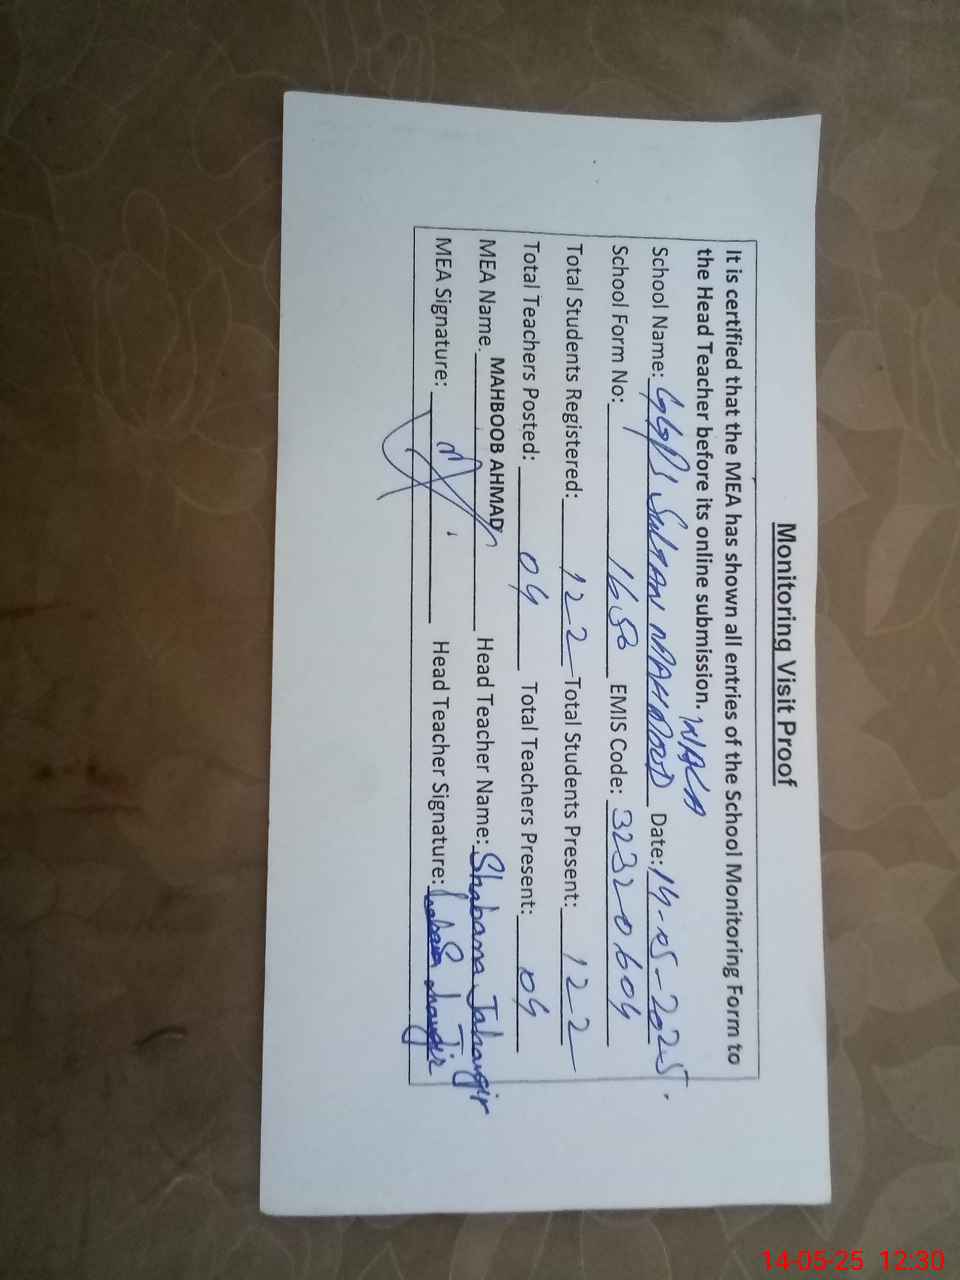 Monitoring Visit Proof
It is certified that the MEA has shown all entries of the School Monitoring Form to
the Head Teacher before its online submission. WALA
School Name: GGPS SULTAN MAHMOOD Date: 14-05-2025
School Form No: 1658 EMIS Code: 32320604
Total Students Registered: 122 Total Students Present: 122
Total Teachers Posted: 04 Total Teachers Present: 04
MEA Name. MAHBOOB AHMAD Head Teacher Name: Shabana Jahangir
MEA Signature: Head Teacher Signature: Shabana Jhangir
14-05-25 12:30